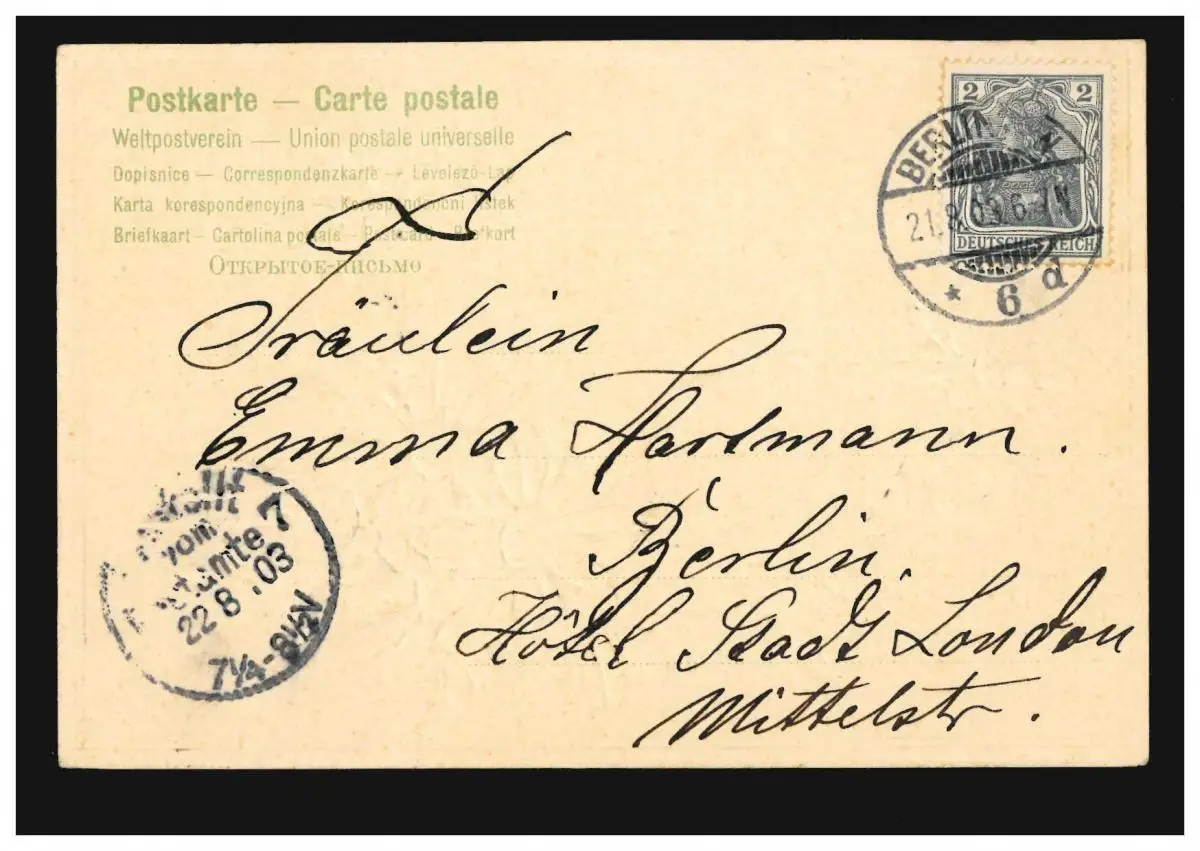 Postkarte — Carte postale
Weltpostverein — Union postale universelle
Dopisnice — Correspondenzkarte — Levelező-Lap
Karta korespondencyjna — Korespondenční lístek
Briefkaart — Cartolina postale — Postcard — Brefkort
Открытое-письмо
2 2
DEUTSCHES REICH
BERLIN N
21.8.03. 6-7N
* 6 d
Fräulein
Emma Hartmann.
Berlin.
Hôtel Stadt London
Mittelstr.
vom
7
22 8 .03
7¼-8½V